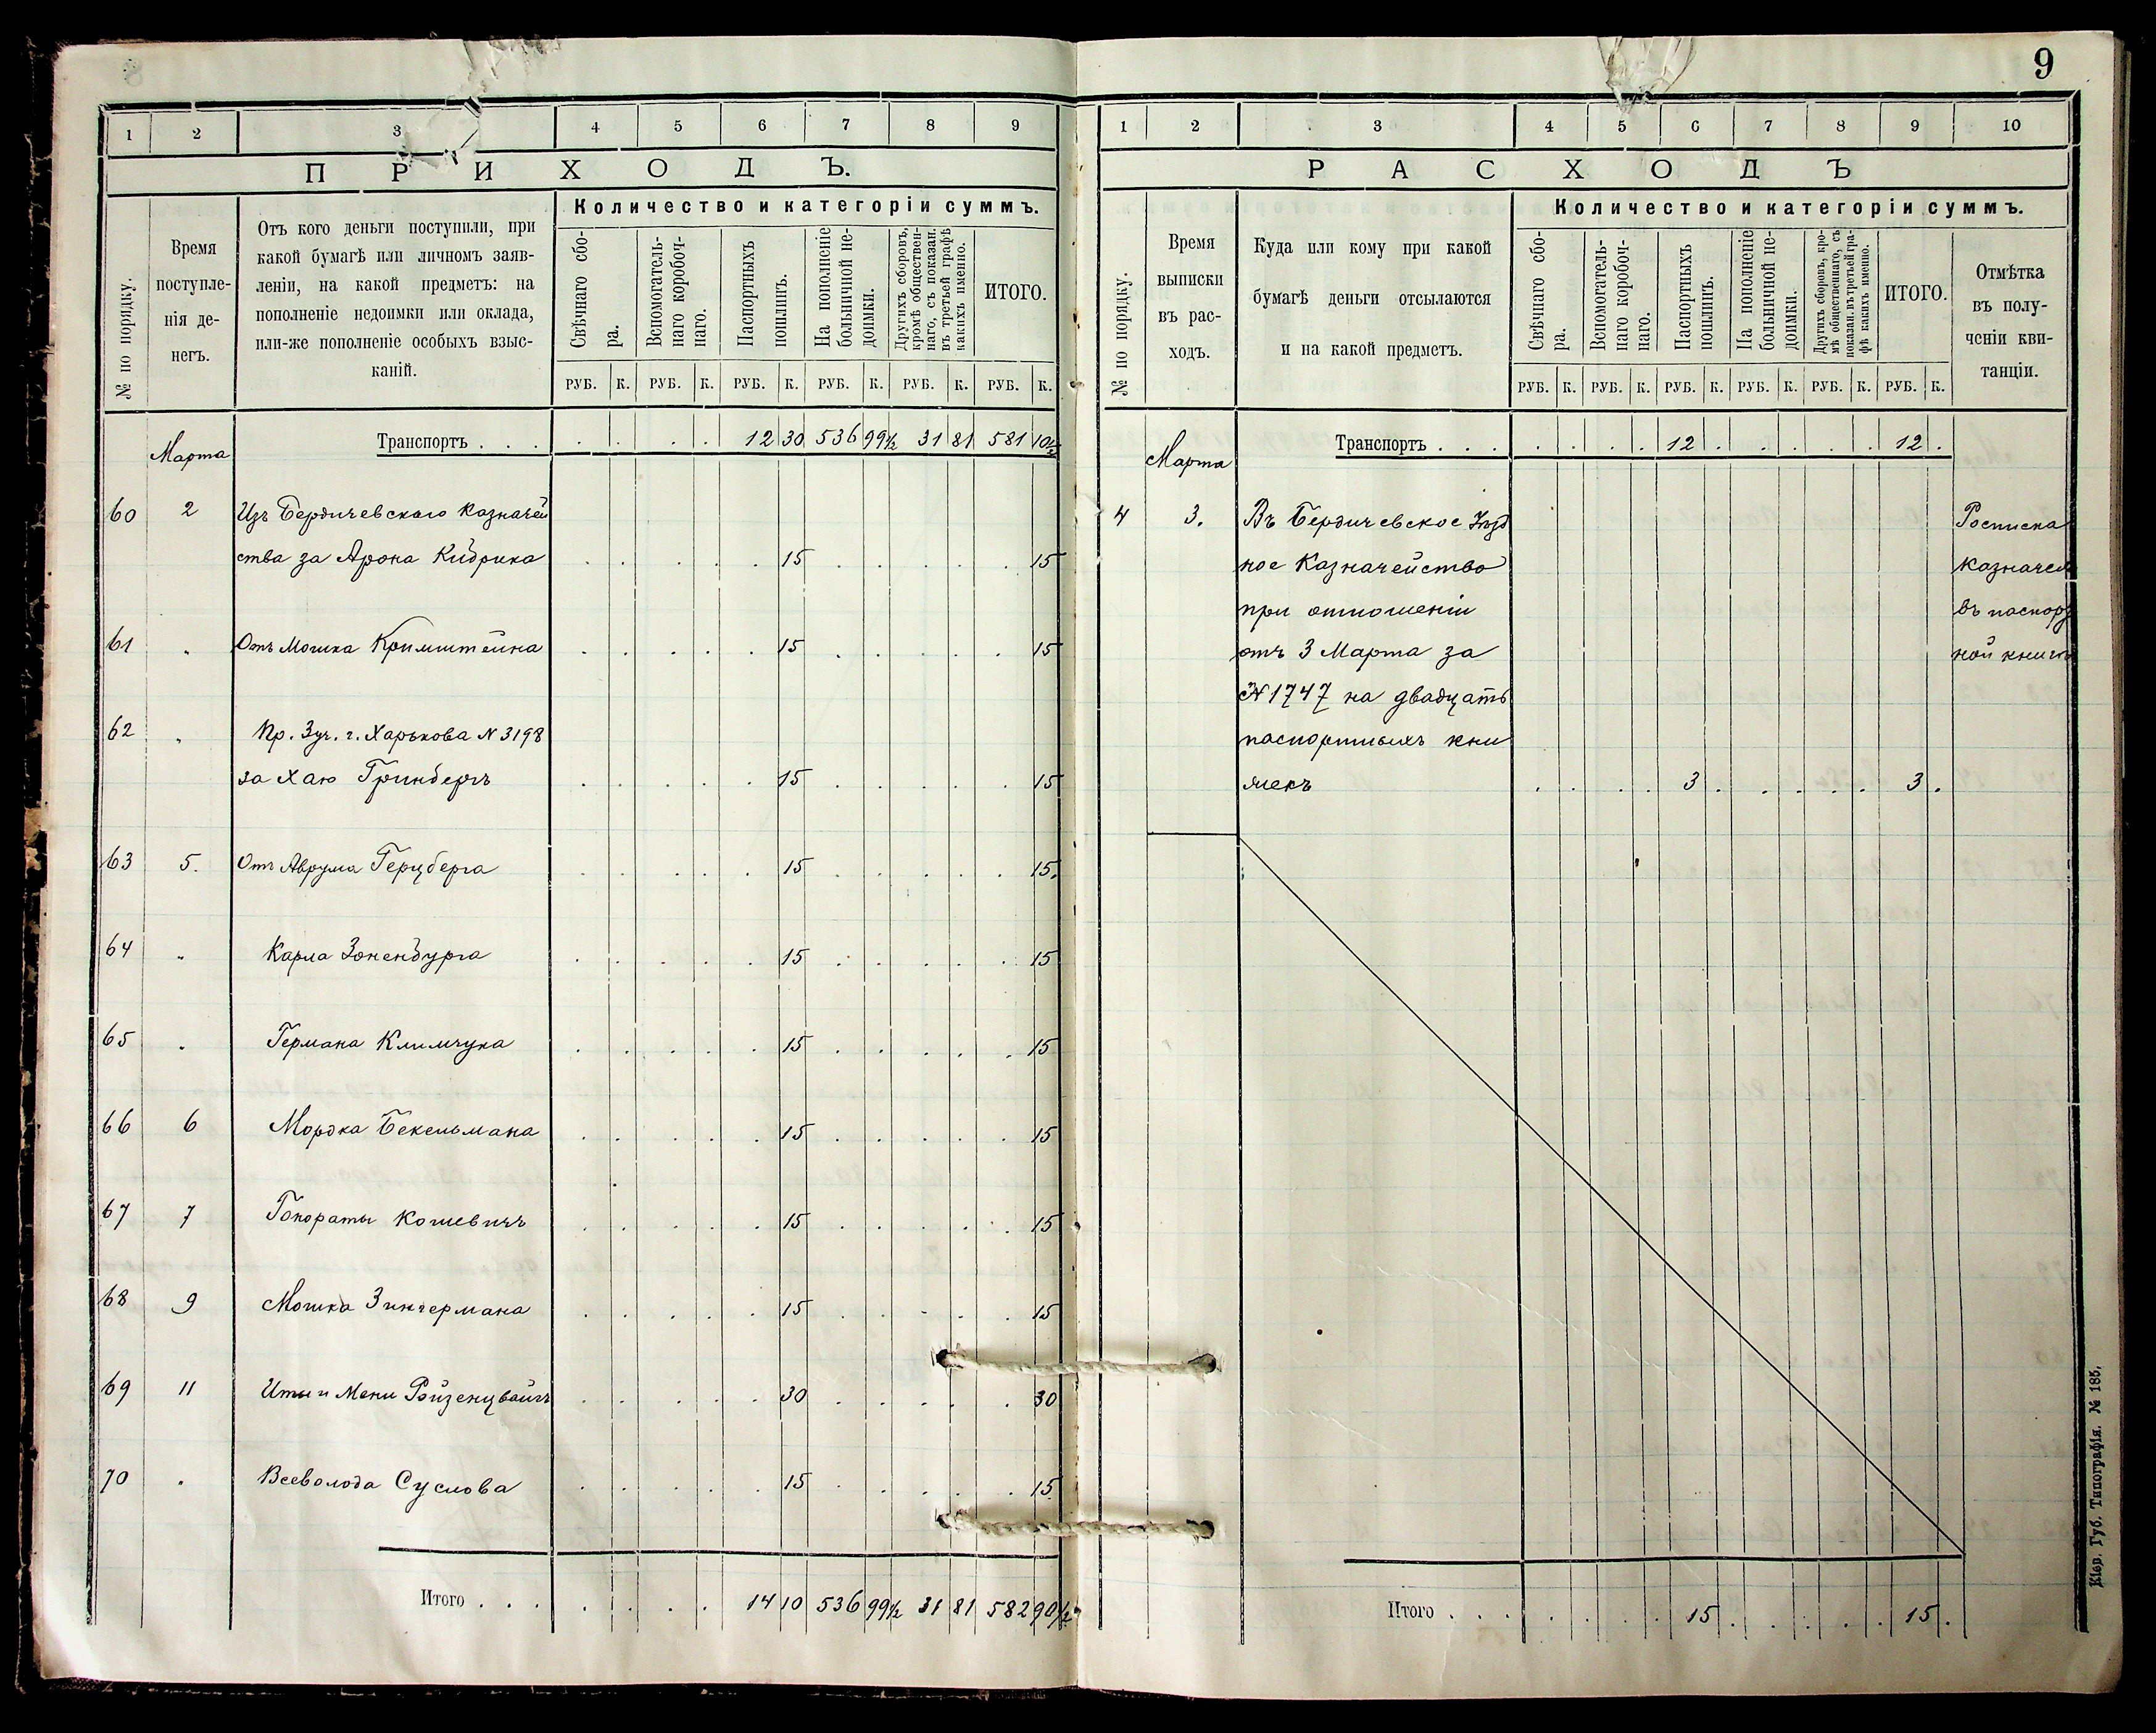 9
1 2 3 4 5 6 7 8 9
ПРИХОДЪ.
№ по порядку.
Время поступле-
нія де-
негъ.
Отъ кого деньги поступили, при
какой бумагѣ или личномъ заяв-
леніи, на какой предметъ: на
пополненіе недоимки или оклада,
или-же пополненіе особыхъ взыс-
каній.
Количество и категоріи суммъ.
Свѣчнаго сбо-
ра.
Вспомогатель-
наго коробоч-
наго.
Паспортныхъ
пошлинъ.
На пополненіе
больничной не-
доимки.
Другихъ сборовъ,
кромѣ обществен-
наго, съ показан.
въ третьей графѣ
какихъ именно.
ИТОГО.
РУБ. К. РУБ. К. РУБ. К. РУБ. К. РУБ. К. РУБ. К.
Марта Транспортъ . . . 12 30 536 99½ 31 81 581 10½
60 2 Изъ Бердичевскаго Казначей
ства за Арона Кидрика 15 15
61 " Отъ Мошка Кримштейна 15 15
62 " Пр. 3 уч. г. Харькова N 3198
за Хаю Гринбергъ 15 15
63 5. Отъ Аврума Герцберга 15 15.
64 " Карла Зоненбурга 15 15
65 " Германа Климчука 15 15
66 6 Мордка Бекельмана 15 15
67 7 Гонораты Кошевичъ 15 15
68 9 Мошка Зингермана 15 15
69 11 Иты и Мени Ройзенцвайгъ 30 30
70 " Всеволода Суслова 15 15
Итого . . . 14 10 536 99½ 31 81 582 90½
1 2 3 4 5 6 7 8 9 10
РАСХОДЪ
№ по порядку.
Время
выписки
въ рас-
ходъ.
Куда или кому при какой
бумагѣ деньги отсылаются
и на какой предметъ.
Количество и категоріи суммъ.
Свѣчнаго сбо-
ра.
Вспомогатель-
наго коробоч-
наго.
Паспортныхъ
пошлинъ.
На пополненіе
больничной не-
доимки.
Другихъ сборовъ, кро-
мѣ общественнаго, съ
показан. въ третьей гра-
фѣ какихъ именно.
ИТОГО.
Отмѣтка
въ полу-
ченіи кви-
танціи.
РУБ. К. РУБ. К. РУБ. К. РУБ. К. РУБ. К. РУБ. К.
Марта Транспортъ . . . 12 . 12 .
4 3. Въ Бердичевское Уѣзд Росписка
ное Казначейство казначея
при отношеніи въ паспорт
отъ 3 Марта за ной книгѣ
N 1747 на двадцать
паспортныхъ кни
жекъ 3 . 3 .
Итого . . . 15 . 15 .
Кіев. Губ. Типографія. № 185.